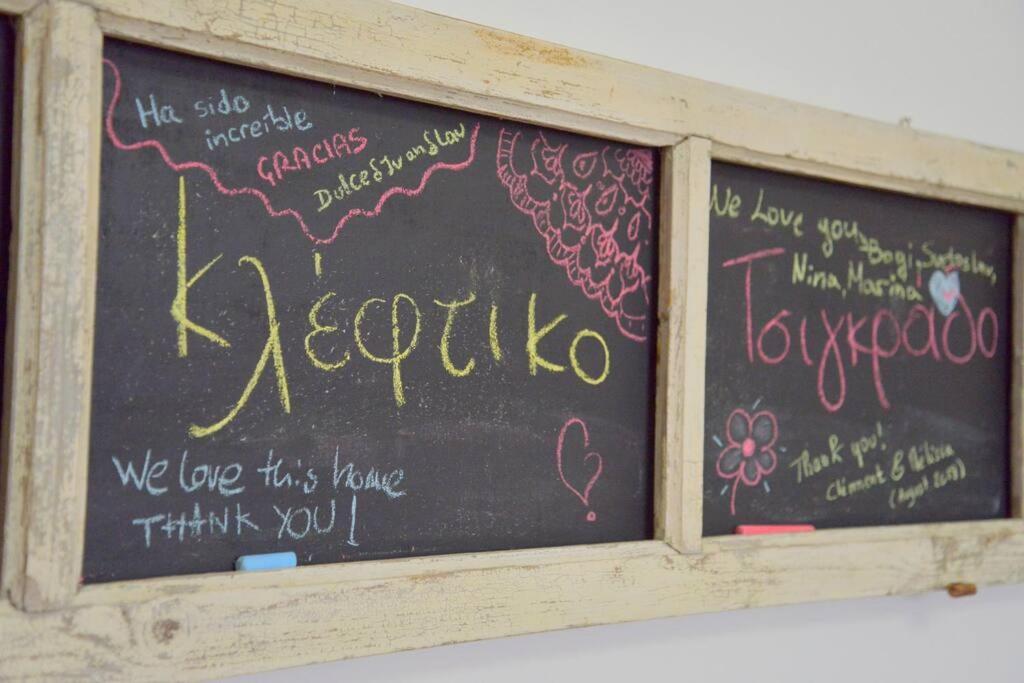 Ha sido
increíble
GRACIAS
κλέφτικο
We love this home
THANK YOU!
We Love you,
Bogi,
Nina, Marina
Τσιγκράδο
Thank you!
Clément &
(August 2017)